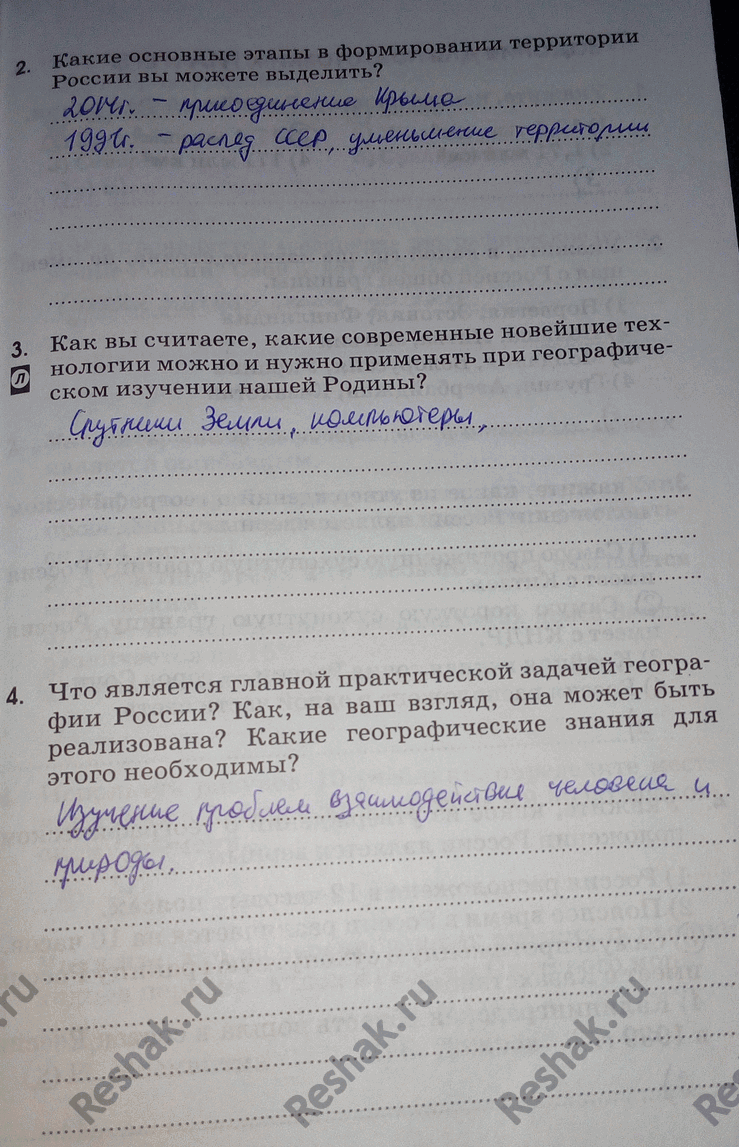 2. Какие основные этапы в формировании территории
России вы можете выделить?
2014г. – присоединение Крыма
1991г. – распад СССР, уменьшение территории
3. Как вы считаете, какие современные новейшие тех-
нологии можно и нужно применять при географиче-
л ском изучении нашей Родины?
Спутники Земли, компьютеры,
4. Что является главной практической задачей геогра-
фии России? Как, на ваш взгляд, она может быть
реализована? Какие географические знания для
этого необходимы?
Изучение проблем взаимодействие человека и
природы.
Reshak.ru
Reshak.ru
Reshak.ru